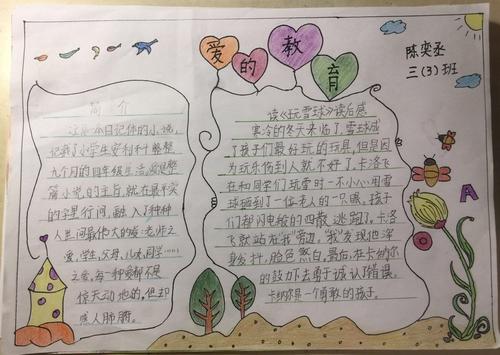 爱的教育
陈奕丞
三(3)班
简介
这是一本日记体的小说,
记载了小学生安利科整整
九个月的四年级生活,爱是整
篇小说的主旨,就在最平实
的字里行间,融入了种种
人世间最伟大的爱:老师之
爱,学生,父母,儿女,同学……
之爱,每一种爱都不是
惊天动地的,但却
感人肺腑。
读《玩雪球》读后感
寒冷的冬天来临了,雪球成
了孩子们最好玩的玩具,但是因
为玩乐伤到人就不好了.卡洛飞
在和同学们玩耍时一不小心用雪
球砸到了一位老人的一只眼,孩子
们都闪电般的四散逃跑了,卡洛
飞就站在"我"旁边,"我"发现他浑
身发抖,脸色煞白,最后,在卡纳尔
的鼓力下去勇于诚认了错误,
卡纳尔是一个勇敢的孩子。
A